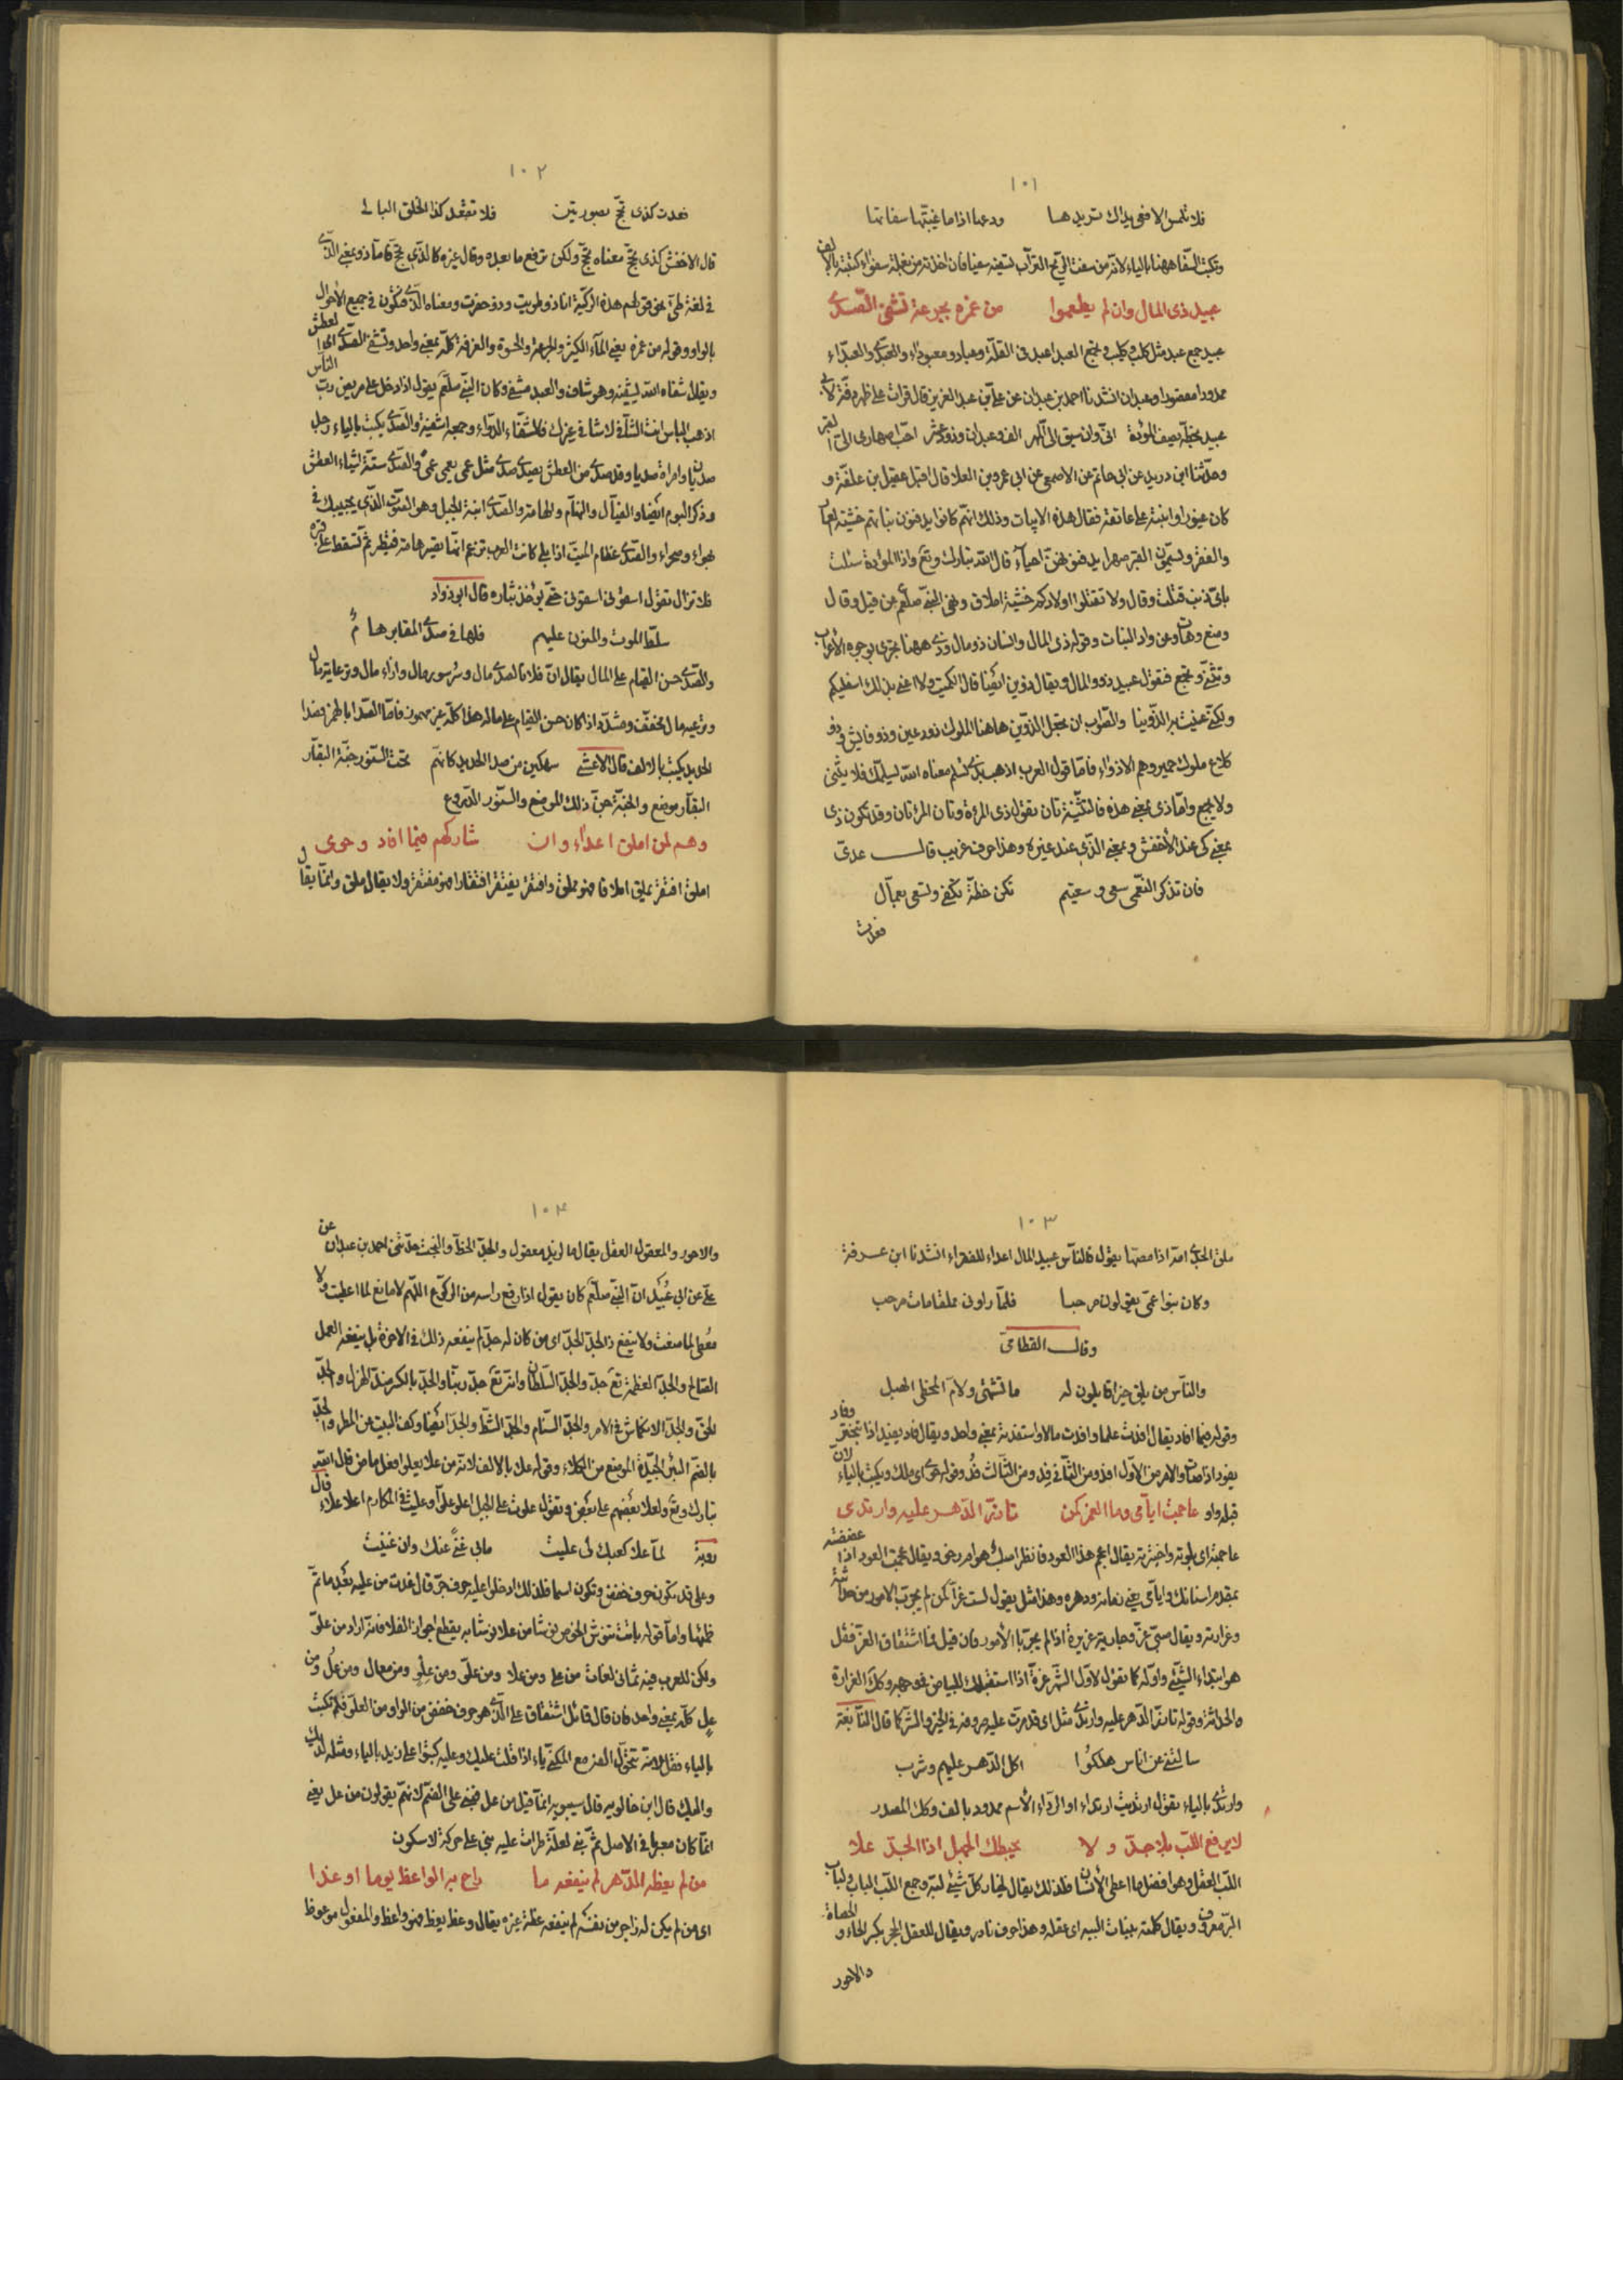 ١٠١
فلا تلمس الافعى يداك تريدها ودعها اذا ما غيبتها سفاتها
ويكتب السفا ههنا بالياء لانه من سفت الريح التراب تسفيه سفيا فان اخذته من بغلة سفواء كتبته بالالف
عبيد ذى المال وان لم يطعموا من غمره بجرعة تشفى الصدى
عبيد جمع عبد مثل كلب وكليب ويجمع العبد اعبد فى القلة وعباد ومعبوداء والعبدى والعبداء
ممدودا ومقصورا وعبدان انشدنا احمد بن عبدان عن على بن عبد العزيز قال قرات على ظهر دفة لابى
عبيد بخطه يصف الموئدة انى وان سيق الى المهر الف وعبدان وذود عشر احب اصهارى الى القبر
وحدثنا ابن دريد عن ابى حاتم عن الاصمعى عن ابى عمرو بن العلا قال اقبل عقيل بن علفة و
كان غيورا وابنته على عاتقه فقال هذه الابيات وذلك انهم كانوا يدفنون بناتهم خشية العار
والفقر ويسمون القبر صهرا يدفنونهن احياء قال الله تبارك وتع واذا الموئدة سئلت
باى ذنب قتلت وقال ولا تقتلوا اولادكم خشية املاق ونهى النبى صلعم عن قيل وقال
ومنع وهات وعن واد البنات وقوله ذى المال وانسان ذو مال وذى ههنا يجرى بوجوه الاعراب
ويثنى ويجمع فتقول عبيد ذوو المال ويقال ذوين ايضا قال الكميت ولا اعنى بذلك اسفليكم
ولكنى عنيت به الذوينا والصواب ان يجعل الذوين هاهنا الملوك ذو رعين وذو فايش وذو
كلاع ملوك حمير وهم الاذواء فاما قول العرب اذهب بذى تسلم معناه الله يسلمك فلا يثنى
ولا يجمع واما ذى بمعنى هذه فالتثنية تان تقول ذى المرءة وتان المرءتان وقد تكون ذى
بمعنى كى عند الاخفش وبمعنى الذى عند غيره وهذا حرف غريب قال عدى
فان تذكر النعمى سعى وسعيتم تكن خطة تكفى ولسعى بعمال
فعدت
١٠٢
فعدت كذى نجح بصورتين فلا تبعد كذا الخلق البالى
قال الاخفش كذى نجح معناه نجح ولكن ترفع ما بعده وقال غيره كالذى نجح فاما ذو بمعنى الذى
فى لغة طى نحو قولهم هذه الركية انا ذو طويت وذو حفرت ومعناه الذى فتكون فى جميع الاحوال
بالواو وقوله من غمره يعنى الماء الكثير والجرعة والحسوة والغرفة كله بمعنى واحد وتشفى الصدى اى العطش
ويقال شفاه الله يشفيه وهو شاف والعبد مشفى وكان النبى صلعم يقول اذا دخل على مريض رب الناس
اذهب الباس انت الشافى لا شافى غيرك فالشفاء الدواء وجمعه اشفية والصدى يكتب بالياء رجل
صديان وامراة صديا وقد صدى من العطش يصدى صدى مثل عمى يعمى عمى والصدى ستة اشياء العطش
وذكر البوم ايضا والهامة والصدى ابنة الجبل وهو الصوت الذى يجيبك فى
بهواء وصحراء والصدى عظام الميت اذا بلى كانت العرب تزعم انما تصير هامة فيطير ثم تسقط على قبره
فلا تزال تقول اسقونى اسقونى حتى يؤخذ بثاره قال ابو دواد
سلط الموت والمنون عليهم فلها فى صدى المقابر هام
والصدى حسن القيام على المال يقال ان فلانا لصدى مال وسرسور مال وازاء مال وترعاية مال
وترعيه مال مخفف ومشدد اذا كان حسن القيام على ماله هذا كله غير مهموز فاما الصدا بالهمز فصدا
الحديد يكتب بالالف قال الاعشى سهكين من صدا الحديد كانهم تحت السنور جنة البقار
البقار موضع والجنة جن ذلك الموضع والسنور الدروع
وهم لمن املق اعداء وان شاركهم فيما افاد وحوى
املق افتقر يملق املاقا فهو مملق وافتقر يفتقر افتقارا فهو مفتقر ولا يقال ملق وانما يقال
١٠٣
ملق الجدى امه اذا مصها يقول فالناس عبيد المال اعداء للفقراء انشدنا ابن عرفة
وكان بنو عمى يقولون مرحبا فلما راونى مملقا مات مرحب
وقال القطامى
والناس من يلق خيرا قايلون له ما تشتهى ولام المخطى الهبل
وقوله فيما افاد يقال افدت علما وافدت مالا واستفدته بمعنى واحد ويقال فاد يفيد اذا تبختر وفاد
يفود اذا مات والامر من الاول افد ومن الثانى فد ومن الثالث فد وقوله حوى اى ملك ويكتب بالياء لان
قبله واو عاجمت ايامى وما الغر كمن تازر الدهر عليه وارتدى
عاجمته اى بلوته واختبرته يقال اعجم هذا العود فانظر اصلب هو ام رخو ويقال عجمت العود اذا عضضته
بمقدم اسنانك وايامى يعنى زمانه ودهره وهذا مثل يقول لست غرا كمن لم يجرب الامور من حداثته
وغرارته ويقال صبى غر وجارية غريرة اذا لم يجربا الامور فان قيل مما اشتقاق الغر فقل
هو ابتداء الشيء واوله كما تقول لاول الشهر غرة اذا استقبلك البياض فى وجهه وكل الغرارة
والحداثة وقوله تازر الدهر عليه وارتدى مثل اى قد مرت عليه صروفه فى الخير والشر كما قال النابغة
سالتنى عن اناس هلكوا اكل الدهر عليهم وشرب
وارتدى بالياء تقول ارتديت ارتداء او الرداء الاسم ممدود بالف وكل المصدر
لا يرفع اللب بلا جد و لا يحطك الجهل اذا الجد علا
اللب العقل وهو افضل ما اعطى الانسان فلذلك يقال لخيار كل شيء لبه وجمع اللب الباب ولباب
البر معروف ويقال كلمته ببنات الببه اى عقله وهذا حرف نادر ويقال للعقل الحجر بكسر الحاء والحصاة و
والاحور
١٠٤
والاحور والمعقول العقل يقال ما لزيد معقول والجد الحظ والبخت حدثنى احمد بن عبدان عن
على عن ابى عبيد ان النبى صلعم كان يقول اذا رفع راسه من الركوع اللهم لا مانع لما اعطيت ولا
معطى لما منعت ولا ينفع ذا الجد الجد اى من كان له جد لم ينفعه ذلك فى الاخرة بل ينفعه العمل
الصالح والجد العظمة تع جد والجد السلطان وانه تع جد ربنا والجد بالكسر ضد الهزل والجد
الحق والجد الانكماش فى الامر والجد السنام والجد الشط والجد ايضا وكف البيت من المطر والجد
بالضم البئر الجيدة الموضع من الكلاء وقوله علا بالالف لانه من علا يعلو افعل ماض قال الله
تبارك وتع ولعلا بعضهم على بعض وتقول علوت على الجبل اعلو علوا وعليت فى المكارم اعلا علاء قال
روبة لما علا كعبك لى عليت مابى غنى عنك وان غنيت
وعلى قد تكون حرف خفض وتكون اسما فلذلك ادخلوا عليه حرف جر قال غدت من عليه بعد ما تم
ظمئها واما قوله باتت تنوش الحوض نوشا من علا نوشا به يقطع اجواز الفلا فانه اراد من علو
ولكن للعرب فيه ثمانى لغات من على ومن علا ومن علو ومن علو ومن معال ومن عل ومن
عل كله بمعنى واحد فان قال قائل اشتقاق على الذى هو حرف خفض من الواو من العلو فلم تكتب
بالياء فقل لانه تتحول الفه مع المكنى ياء اذا قلت عليك وعليه كتبوا على زيد بالياء ومثله لديك
واليك قال ابن خالويه قال سيبويه انما قيل من عل فبنى على الضم لانهم يقولون من عل يعنى
انما كان معربا فى الاصل ثم بنى لعلة طرات عليه بنى على حركة لا سكون
من لم يعظه الدهر لم ينفعه ما راح به الواعظ يوما او غدا
اى من لم يكن له زاجر من نفسه لم ينفعه عظة غيره يقال وعظ يعظ فهو واعظ والمفعول موعوظ